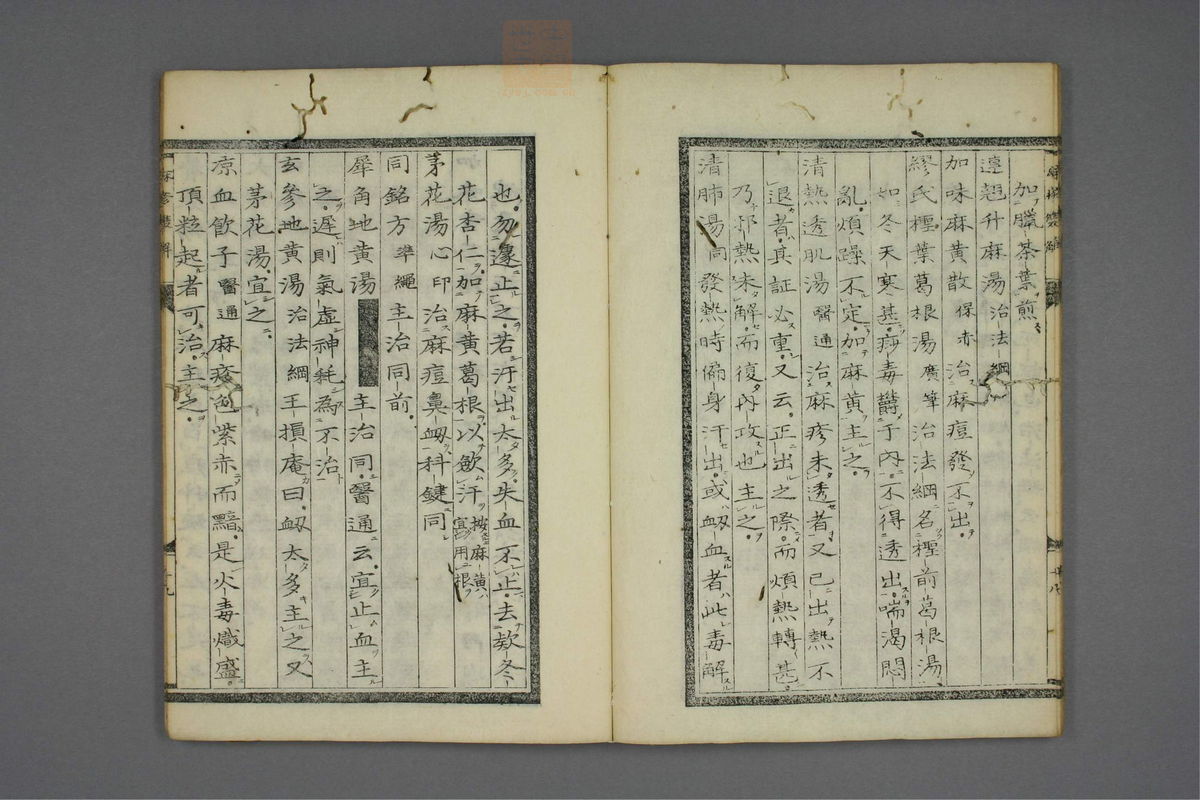 加臘茶葉煎
連翹升麻湯治法綱
加味麻黃散保赤治麻痘發不出
繆氏檉葉葛根湯廣筆治法綱名檉前葛根湯
如冬天寒甚痧毒欝于內不得透出喘渴悶
亂煩躁不定加麻黃主之
清熱透肌湯醫通治麻疹未透者又已出熱不
退者其証必重又云正出之際而煩熱轉甚
乃邪熱未解而復內攻也主之
清肺湯同發熱時徧身汗出或衂血者此毒解
也勿遽止之若汗出太多失血不止去欵冬
花杏仁加麻黃葛根以歛汗按麻黃宜用根
茅花湯心印治麻痘鼻衂科鍵同
同銘方準繩主治同前
犀角地黃湯主治同醫通云宜止血主
之遲則氣虛神耗為不治
玄參地黃湯治法綱王損庵曰衂太多主之又
茅花湯宜之
凉血飲子醫通麻疹色紫赤而黯是火毒熾盛
頂粒起者可治主之